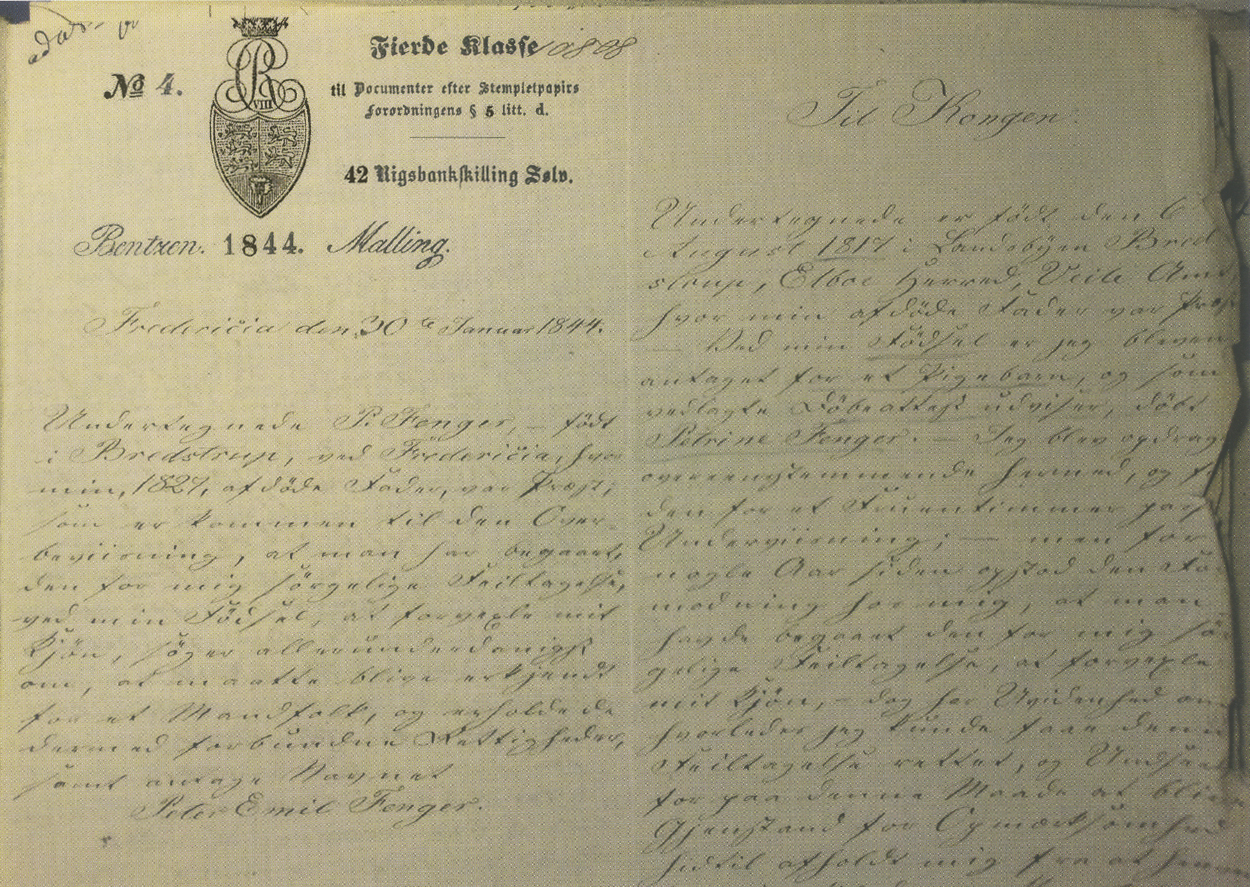 Fierde Klasse
No 4.
VIII
til Documenter efter Stempletpapirs
Forordningens § 5 litt. d.
42 Rigsbankskilling Sølv.
Bentzen. 1844. Malling.
Fredericia den 30te Januar 1844.
Undertegnede P. Fenger, – född
i Bredstrup, ved Fredericia, hvor
min, 1827, afdöde Fader, var Præst,
som er kommen til den Over-
beviisning, at man har begaaet,
den for mig sörgelige Feiltagelse,
ved min Födsel, at forvexle mit
Kjön, söger allerunderdanigst
om, at maatte blive erkjendt
for et Mandfolk, og erholde de
dermed forbundne Rettigheder,
samt antage Navnet
Peter Emil Fenger.
Til Kongen.
Undertegnede er födt den 6
August 1817 i Landsbyen Bred
strup, Elboe Herred, Veile Amt
hvor min afdöde Fader var Præst
– Ved min Födsel er jeg bleven
antaget for et Pigebarn, og som
vedlagte Döbeattest udviser, döbt
Petrine Fenger. – Jeg blev opdrag
overeensstemmende hermed, og
den for et Fruentimmer pass
Underviisning; – men for
nogle Aar siden opstod den For
modning hos mig, at man
havde begaaet den for mig sör
gelige Feiltagelse, at forvexle
mit Kjön, – dog har Uvidenhed om
hvorledes jeg kunde faae denne
Feiltagelse rettet, og Undseel
for paa denne Maade at blive
Gjenstand for Opmærksomhed
hidtil afholdt mig fra at